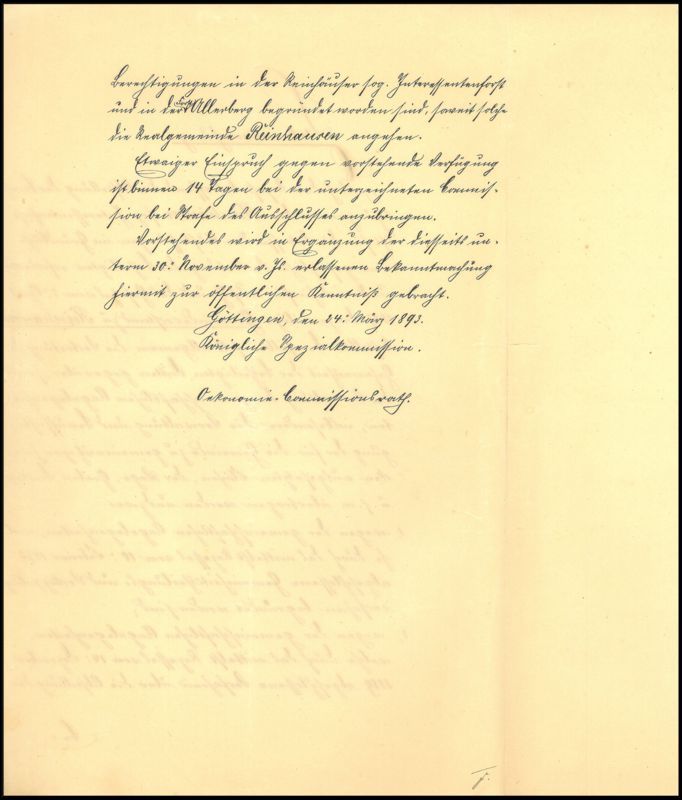 Berechtigungen in der Reinhäuser sog. Interessentenforst
und in der Forst Allerberg begründet worden sind, soweit solche
die Realgemeinde Reinhausen angehen.
Etwaiger Einspruch gegen vorstehende Verfügung
ist binnen 14 Tagen bei der unterzeichneten Commis-
sion bei Strafe des Ausschlusses anzubringen.
Vorstehendes wird in Ergänzung der diesseits un-
term 30. November v. Js. erlassenen Bekanntmachung
hiermit zur öffentlichen Kenntniß gebracht.
Göttingen, den 24. März 1893.
Königliche Spezialkommission.
Oekonomie-Commissionsrath.